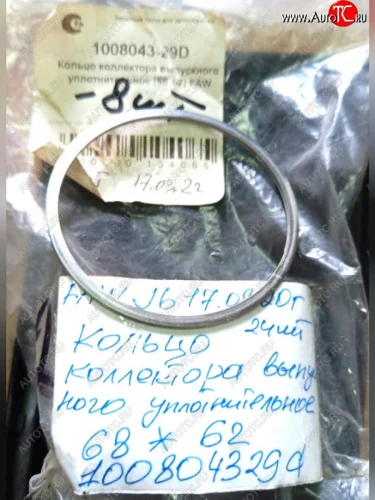 www.AutoTC.ru
1008043-29D
Кольцо коллектора выпускного
уплотнительное FAW
-8 шт
17.08.22
FAW J6 17.08.20г
24шт
Кольцо
коллектора выпус
ного уплотнительное
68 * 62
100804329d